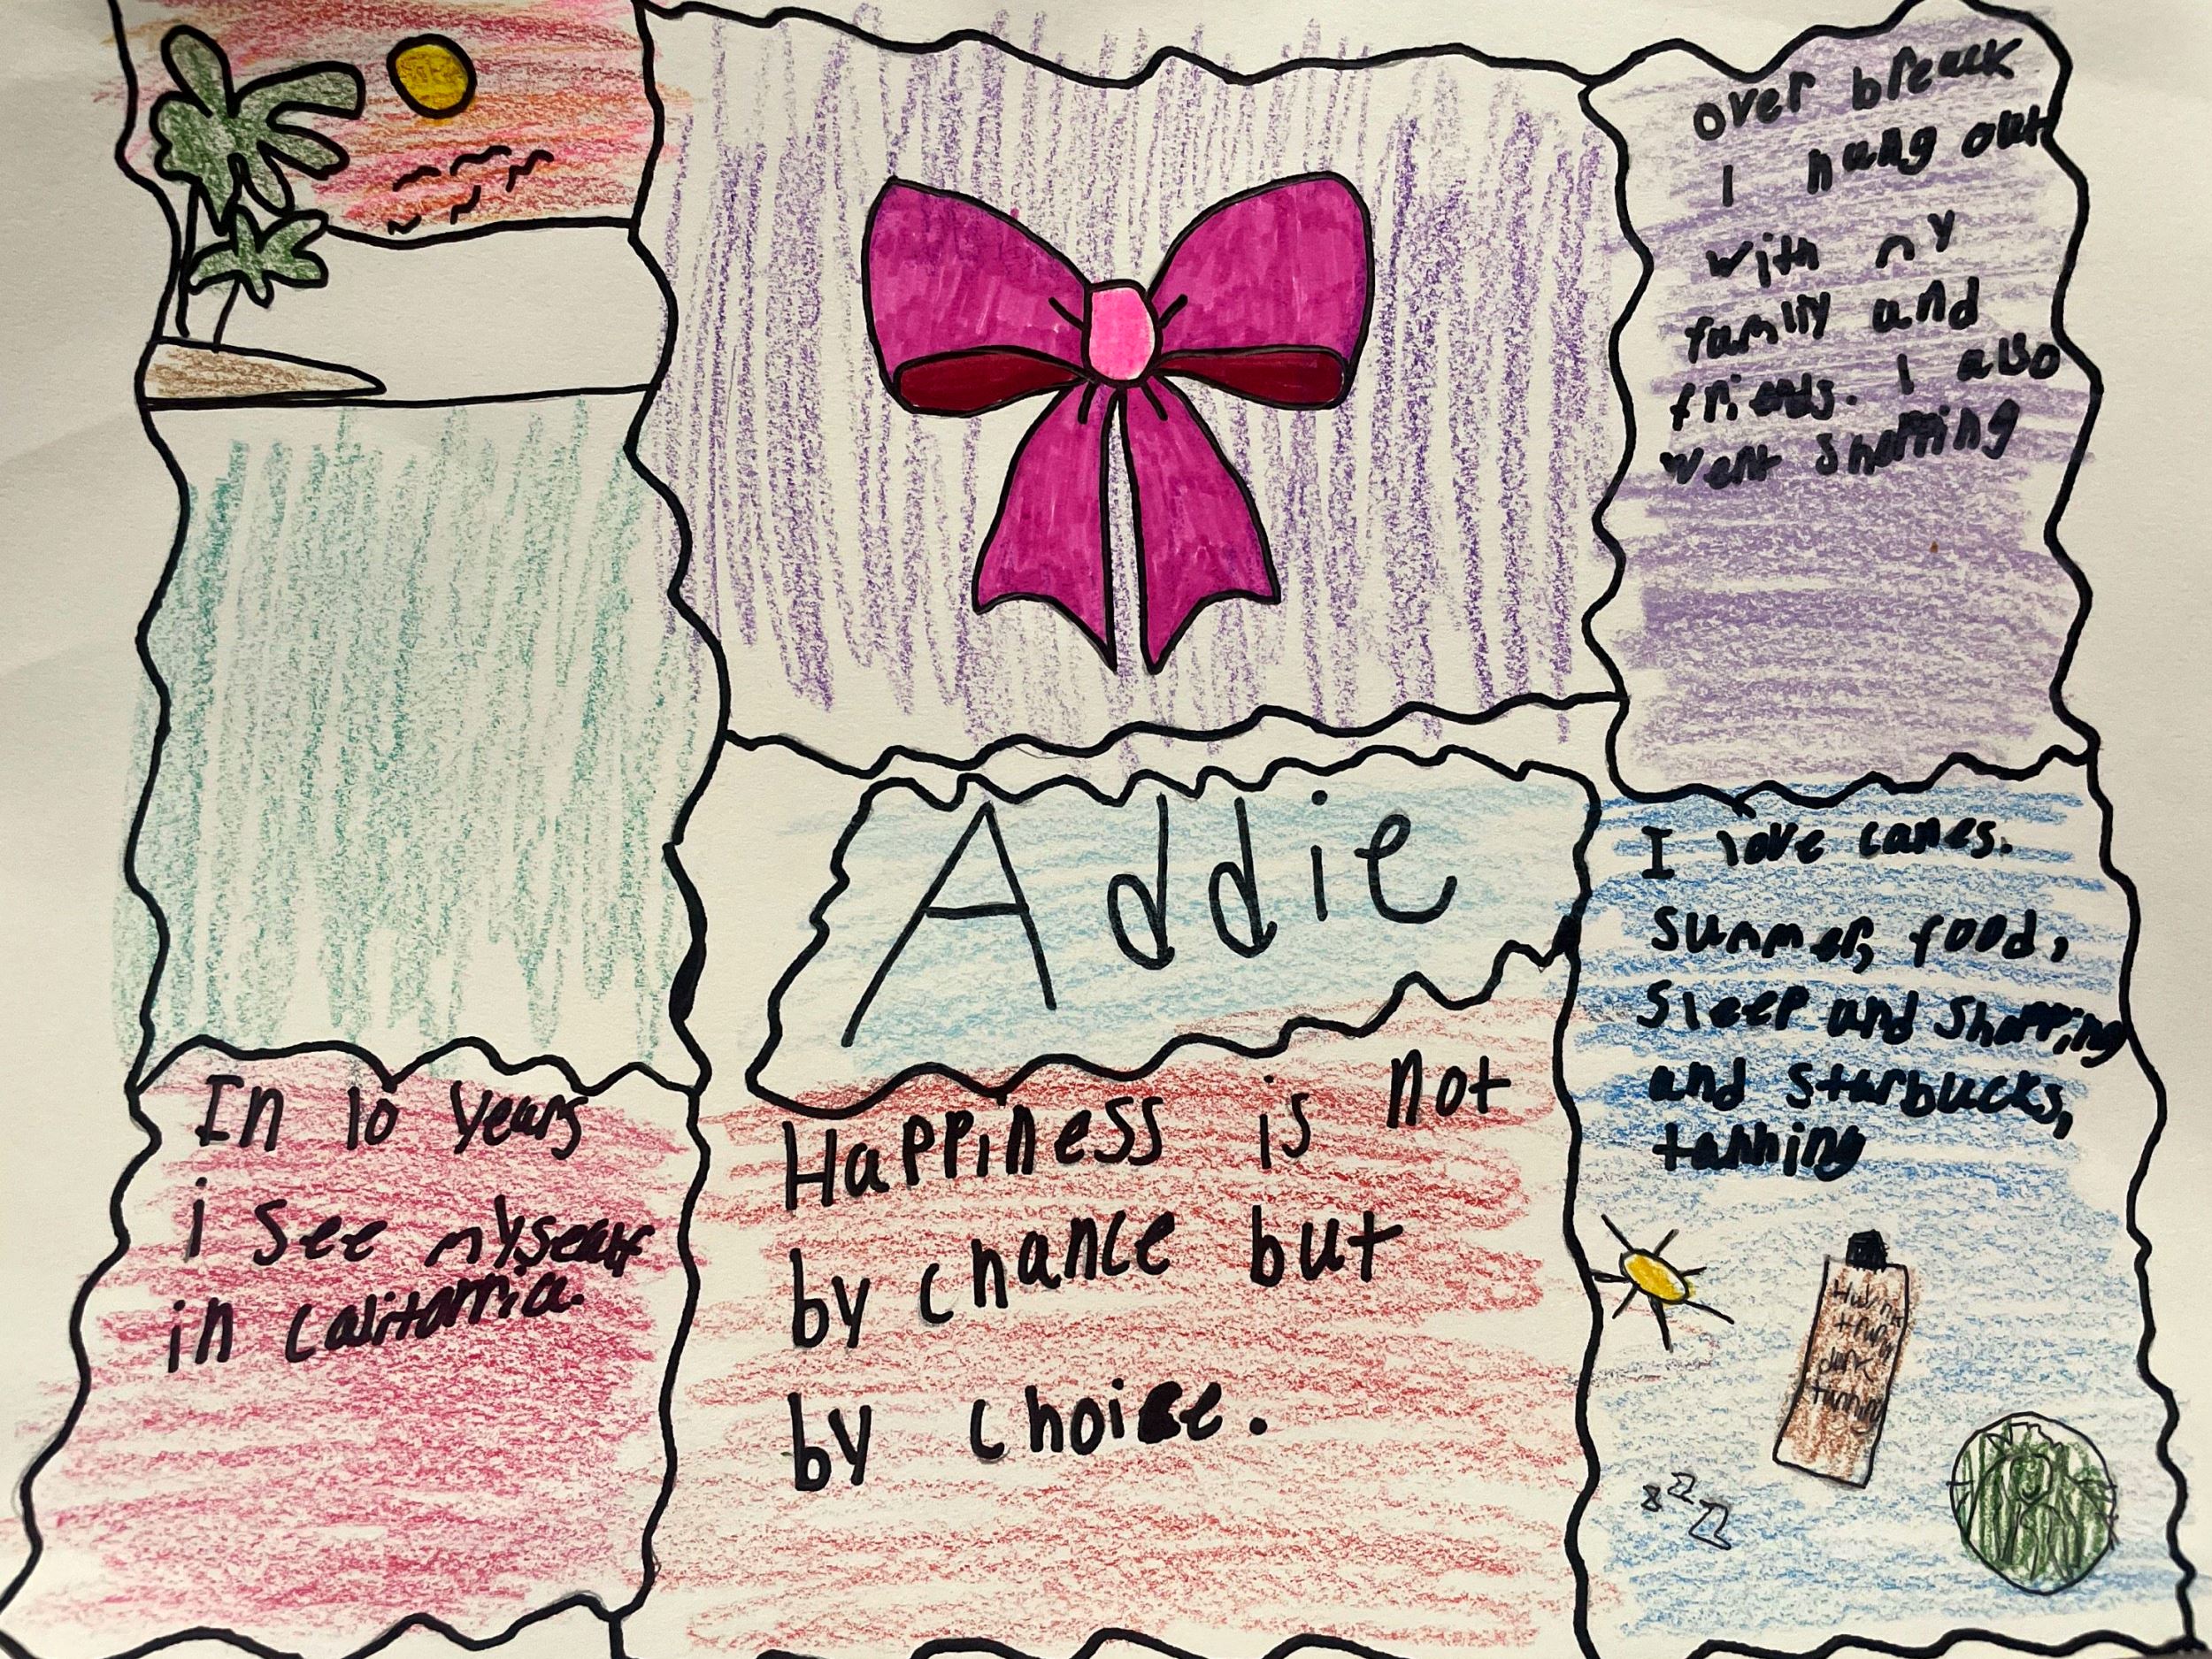 over break
I hung out
with my
family and
friends. I also
went shopping
Addie
I love canes.
summer, food,
sleep and shopping
and starbucks,
tanning
In 10 years
i see myself
in california.
Happiness is not
by chance but
by choice.
dark
tanning
zzz